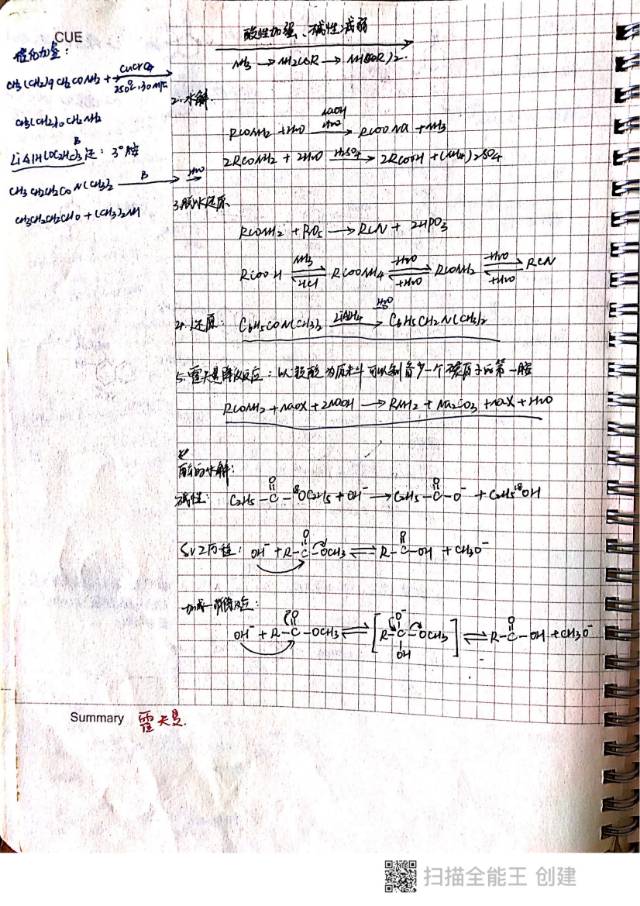 CUE
催化加氢:
CH3(CH2)9CH2CONH2 + CuCrO4 250℃,30MPa
CH3(CH2)10CH2NH2
LiAlH(OC2H5)3还: 3°胺
CH3CH2CH2CON(CH3)2 B H2O
CH3CH2CH2CHO + (CH3)2NH
酸性加强、碱性减弱
NH3 → NH2COR → NH(COR)2.
2. 水解
RCONH2 + H2O NaOH H2O → RCOONa + NH3
2RCONH2 + 2H2O H2SO4 → 2RCOOH + (NH4)2SO4
3.脱水还原
RCONH2 + P2O5 → RCN + 2HPO3
RCOOH NH3 ⇌ HCl RCOONH4 -H2O ⇌ +H2O RCONH2 -H2O ⇌ +H2O RCN
4. 还原: C6H5CON(CH3)2 LiAlH4 H2O → C6H5CH2N(CH3)2
5. 霍夫曼降级反应: 以羧酸为原料可以制备少一个碳原子的第一胺
RCONH2 + NaOX + 2NaOH → RNH2 + Na2CO3 + NaX + H2O
酯的水解:
碱性: C2H5-C(=O)-18OC2H5 + OH- → C2H5-C(=O)-O- + C2H5 18OH
SN2历程: OH- + R-C(=O)-OCH3 ⇌ R-C(=O)-OH + CH3O-
加成-消除反应:
OH- + R-C(=O)-OCH3 ⇌ [R-C(O-)(OH)-OCH3] ⇌ R-C(=O)-OH + CH3O-
Summary 霍夫曼.
扫描全能王 创建